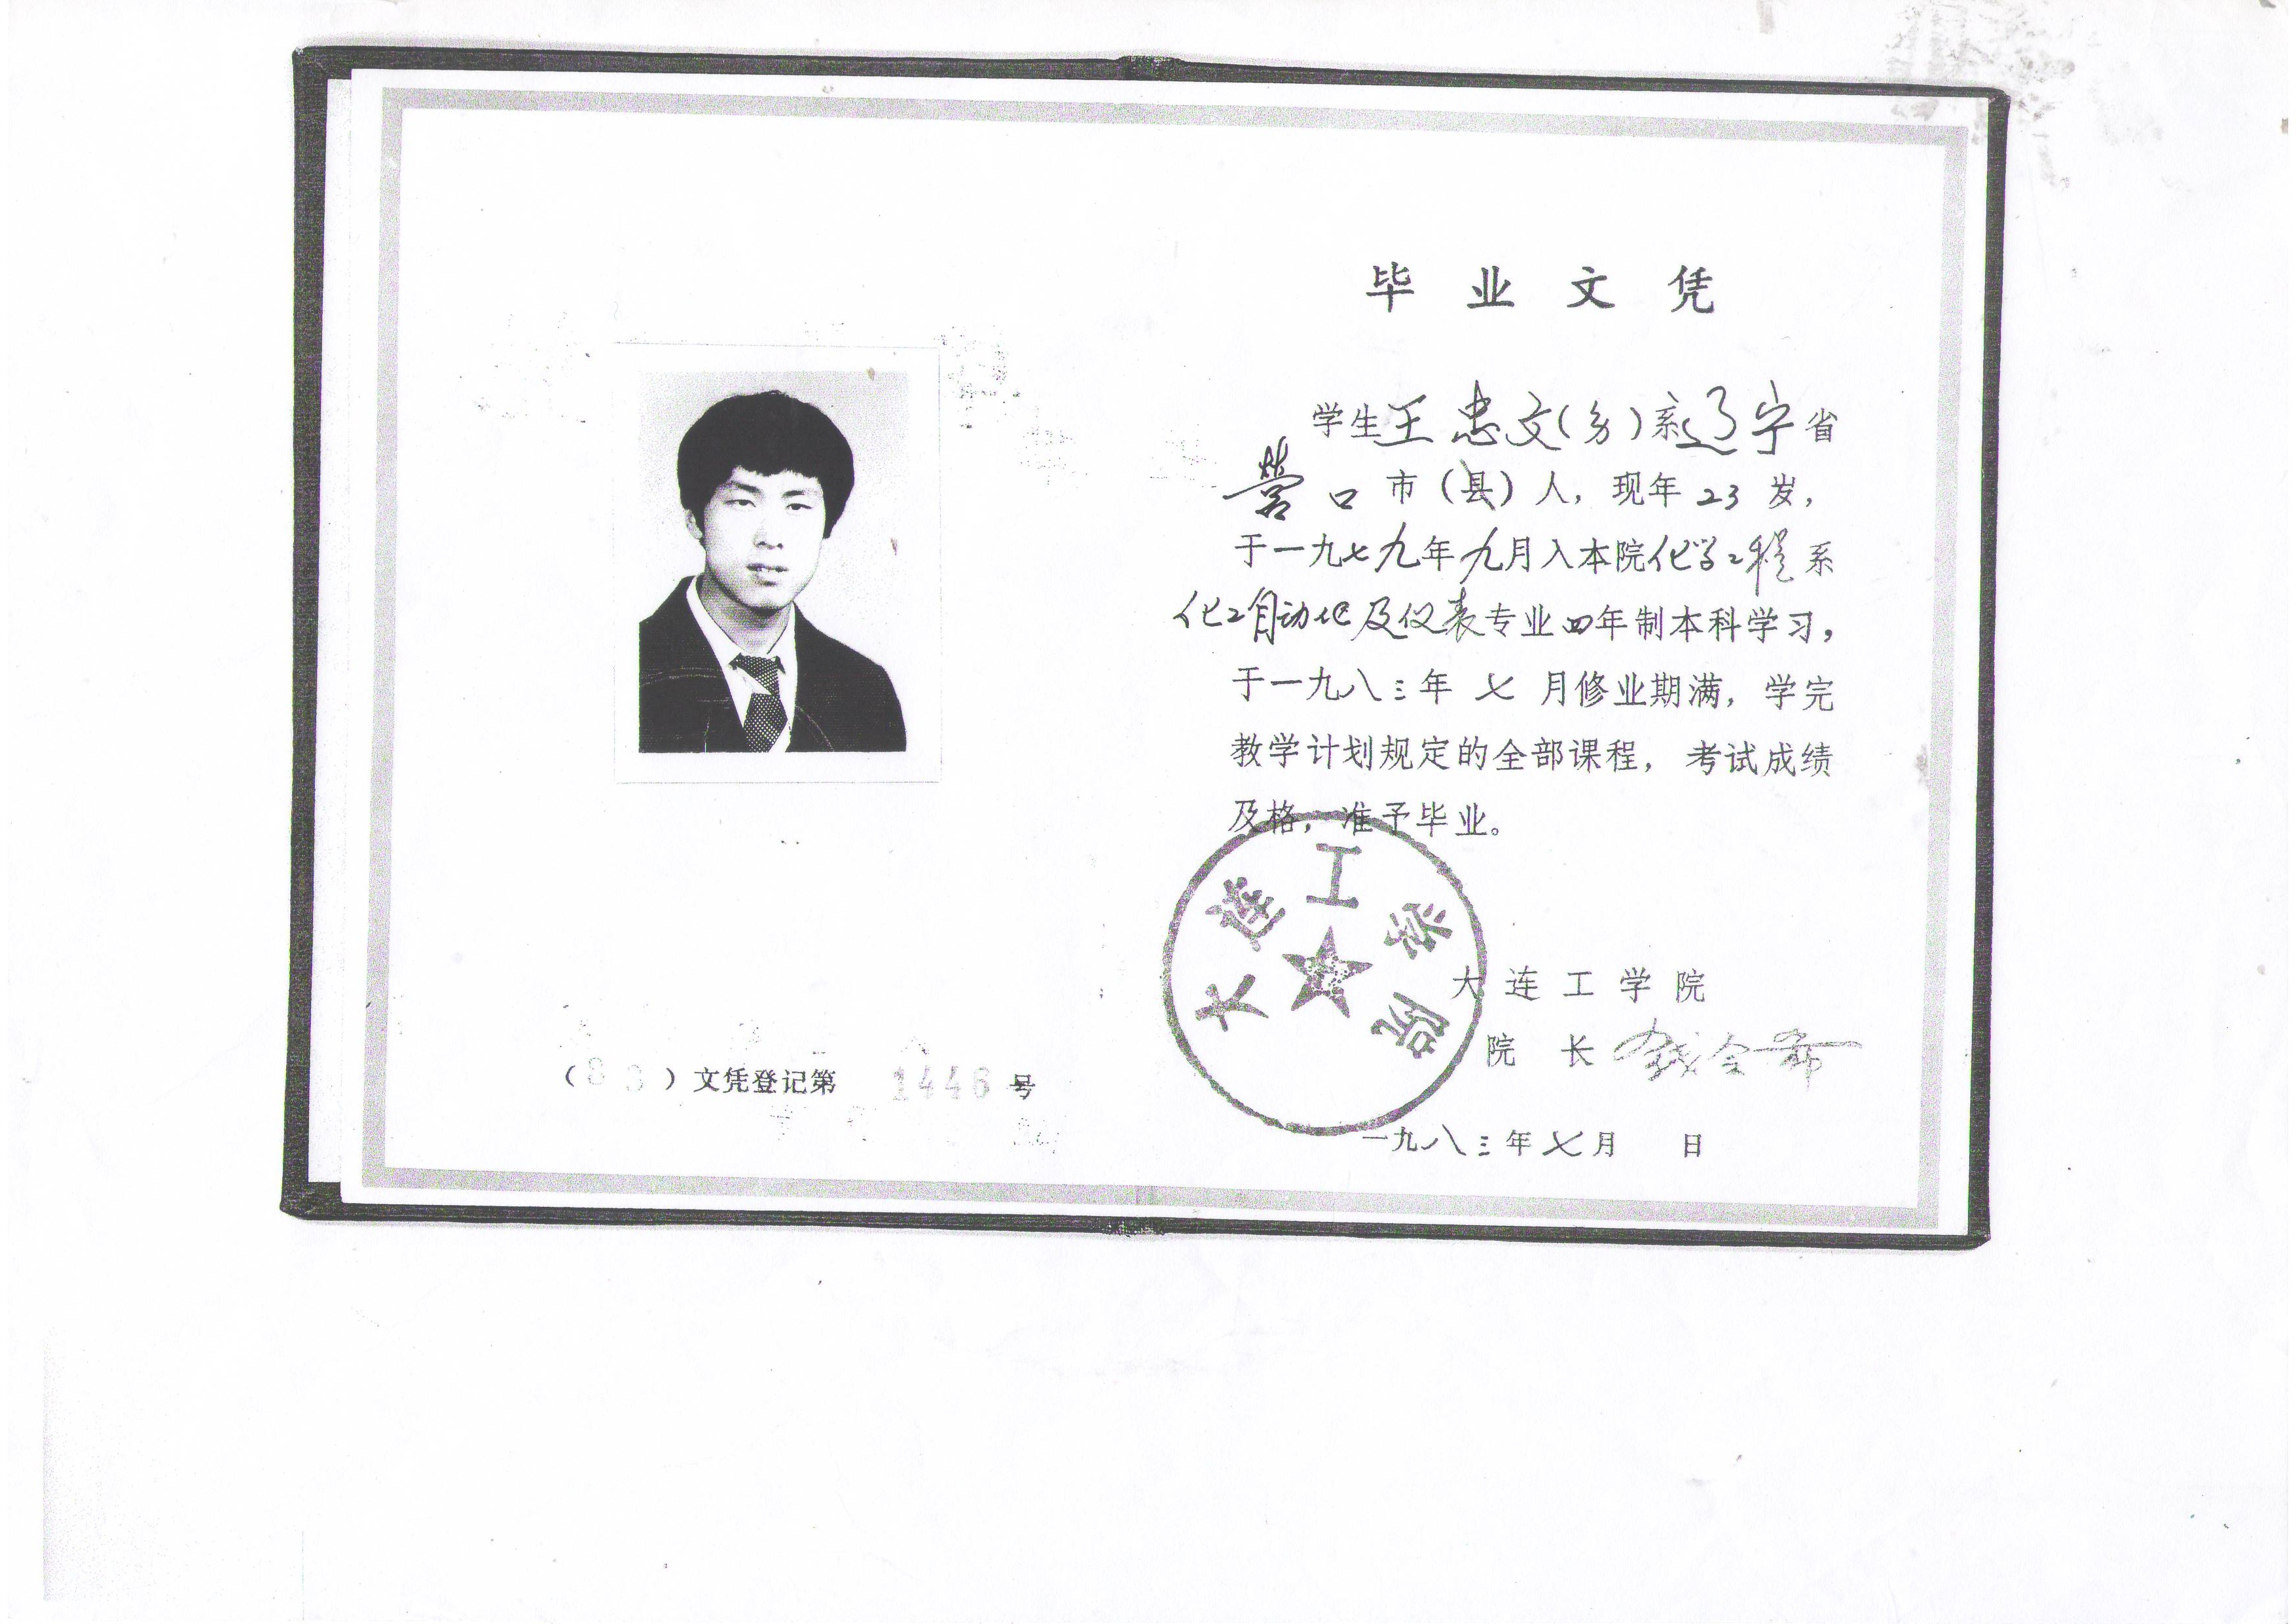 毕业文凭
学生王忠文(男)系辽宁省
营口市(县)人,现年23岁,
于一九七九年九月入本院化学工程系
化工自动化及仪表专业四年制本科学习,
于一九八三年七月修业期满,学完
教学计划规定的全部课程,考试成绩
及格,准予毕业。
大连工学院
大连工学院
院长 钱令希
一九八三年七月 日
(83)文凭登记第 1446 号